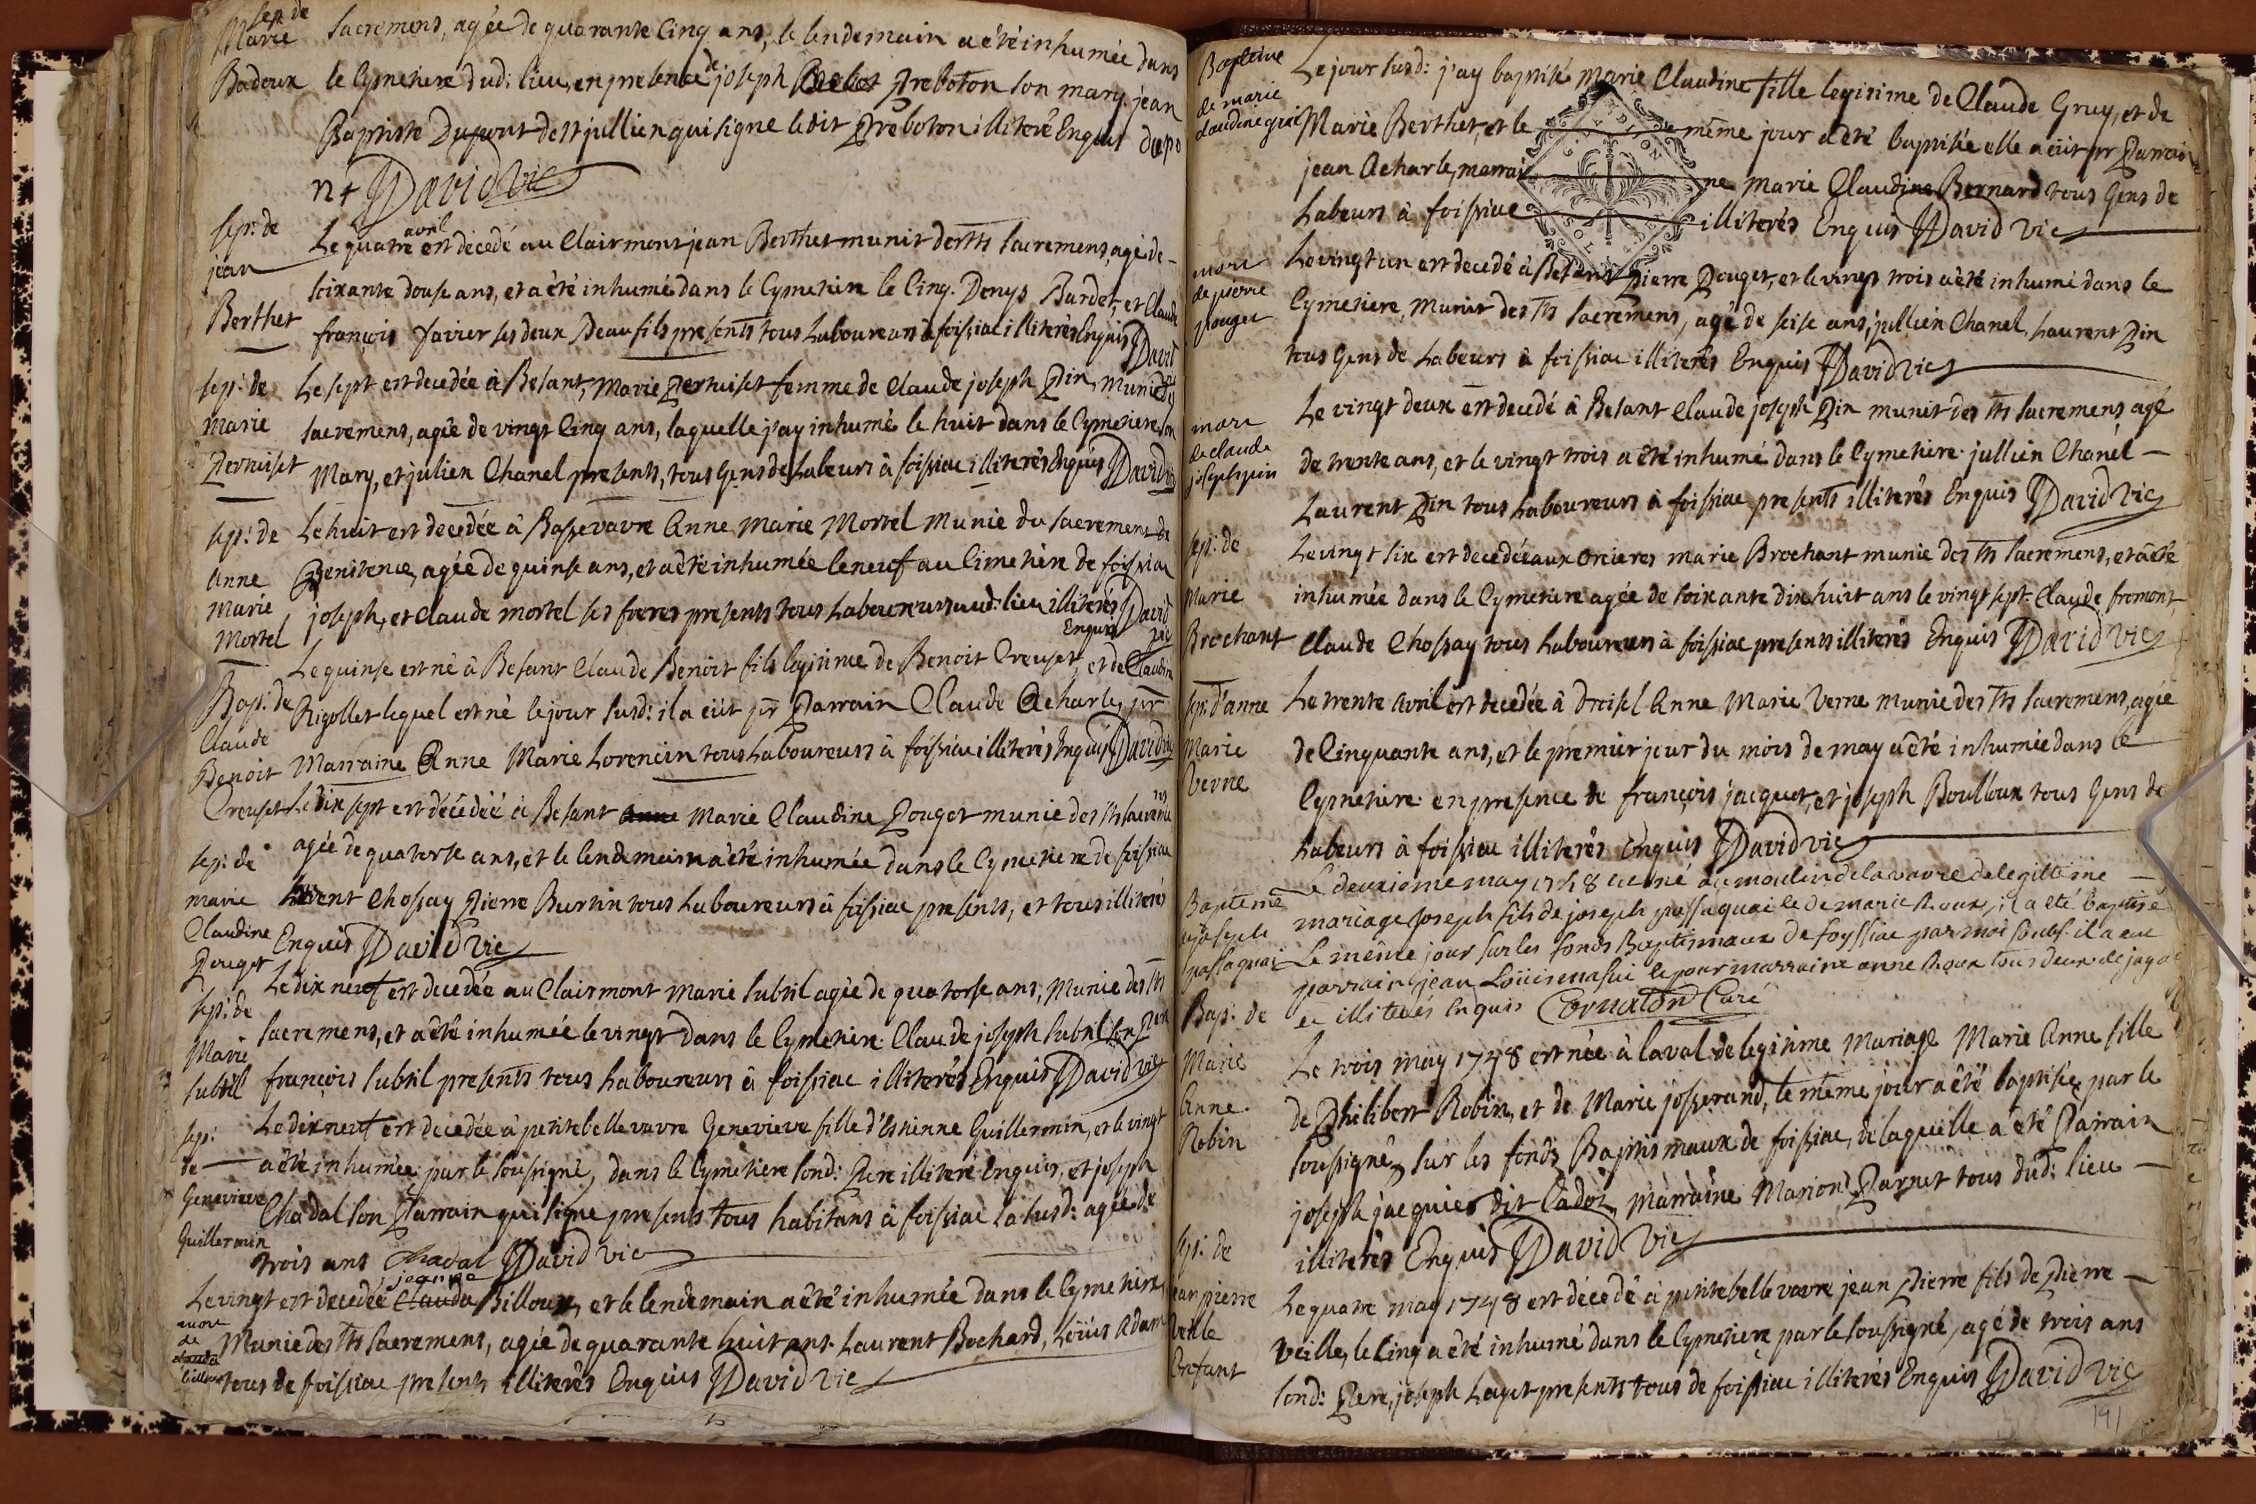 sep: de
Marie
Badoux
sacremens, agée de quarante Cinq ans, le lendemain a été inhumée dans
le Cymetiere dud: lieu, en presence de joseph Preboton son mary. jean
Baptiste Dupont de st jullien qui signe ledit Preboton illiteré Enquis dupo
nt David vic
sep: de
jean
Berthet
Le quatre avril est decedé au Clairmont jean Berthet munit des sts sacremens, agé de
soixante douse ans, et a été inhumé dans le Cymetiere le Cinq. Denys Bardet, et Claude
françois favier ses deux Beaufils presents tous Laboureurs à foissiac illiterés Enquis David
sep: de
marie
Pernuiset
Le sept est decedée à Besant, Marie Pernuiset femme de Claude joseph Pin, munie des
sacremens, agée de vingt Cinq ans, laquelle j'ay inhumé le huit dans le Cymetiere son
Mary, et julien Chanel presents, tous Gens de Labeurs à foissiac illiterés Enquis David vic
sep: de
Anne
Marie
Mortel
Le huit est decedée à Bassevavre Anne Marie Mortel Munie du sacrement de
Penitence, agée de quinse ans, et a été inhumée le neuf au Cimetiere de foissiac
joseph, et Claude mortel ses freres presents tous Laboureurs aud: lieu illiterés
Enquis David vic
Bap: de
Claude
Benoit
Creuset
Le quinse est né à Besant Claude Benoit fils legitime de Benoit Creuset, et de Claudine
Rigollet lequel est né le jour susd: il a eüt pr Parrain Claude Acharle, pr
Marraine Anne Marie Lorencin tous Laboureurs à foissiac illiterés Enquis David vic
sep: de
marie
Claudine
Pouget
Le dix sept est décédée à Besant Anne Marie Claudine Pouget munie des sts sacremens
agée de quatorse ans, et le lendemain a été inhumée dans le Cymetiere de foissiac
Chossay Pierre Burtin tous Laboureurs à foissiac presents, et tous illiterés
Enquis David vic
sep: de
Marie
subtil
Le dix neuf est decedée au Clairmont Marie subtil agée de quatorse ans, Munie des sts
sacremens, et a été inhumée le vingt dans le Cymetiere Claude joseph subtil son Pere
françois subtil presents tous Laboureurs à foissiac illiterés Enquis David vic
sep:
de
Genevieve
Guillermin
Le dix neuf est decedée à petitebellevavre Genevieve fille d'Estienne Guillermin, et le vingt
a été inhumée par le soussigné, dans le Cymetiere sond: Pere illiteré Enquis, et joseph
Chadal son Parrain qui signe presents tous habitans à foissiac Lasusd: agée de
trois ans Chadal David vic
mort
de
Claude
billoux
Le vingt est decedée Claude jeanne Billoux, et le lendemain a été inhumée dans le Cymetiere,
Munie des sts sacremens, agée de quarante huit ans. Laurent Bochard, Loüis Adam
tous de foissiac presents illiterés Enquis David vic
Bapteme
de marie
claudine grui
Le jour susd: j'ay baptisé Marie Claudine fille legitime de Claude Gruy, et de
Marie Berthet, et le même jour a été baptisée elle a eüt pr Parrain
jean Acharle, marraine Marie Claudine Bernard tous Gens de
Labeurs à foissiac illiterés Enquis David vic
mort
de pierre
pouget
Le vingt un est decedé à Besant Pierre Pouget, et le vingt trois a été inhumé dans le
Cymetiere, Munit des sts sacremens, agé de seise ans, jullien Chanel, Laurent Pin
tous Gens de Labeurs à foissiac illiterés Enquis David vic
mort
de claude
joseph pin
Le vingt deux est decedé à Besant Claude joseph Pin munit des sts sacremens agé
de trente ans, et le vingt trois a été inhumé dans le Cymetiere jullien Chanel
Laurent Pin tous Laboureurs à foissiac presents illiterés Enquis David vic
sep: de
Marie
Brochant
Le vingt six est decedée aux Orcieres marie Brochant munie des sts sacremens, et a été
inhumée dans le Cymetiere agée de soixante dix huit ans le vingt sept. Claude fromont,
Claude Chossay tous Laboureurs à foissiac presents illiterés Enquis David vic
sep: d'anne
Marie
Verne
Le trente Avril est decedée à Droisel Anne Marie Verne Munie des sts sacremens, agée
de Cinquante ans, et le premier jour du mois de may a été inhumée dans le
Cymetiere en presence de françois jacquet, et joseph Boulloux tous Gens de
Labeurs à foissiac illiterés Enquis David vic
Bapteme
de joseph
passaquai
Le deuxiéme may 1748 est né au moulin de la vavre de legitime
mariage joseph fils de joseph passaquai et de marie Roux, il a été baptisé
Le même jour sur les fonds Baptismaux de foyssiac par moi sousé. il a eu
parrain jean Loüis et pour marraine anne Roux tous deux de
et illiterés Enquis Cornaton Curé
Bap: de
Marie
Anne
Robin
Le trois may 1748 est née à Laval de legitime Mariage Marie Anne fille
de Philibert Robin, et de Marie josserand, le même jour a été baptisée par le
soussigné, sur les fonds Baptismaux de foissiac, de laquelle a été Parrain
joseph jacquier dit Cadoz, marraine Marion Parnet tous dud: lieu
illiterés Enquis David vic
sep: de
jean pierre
veille
Enfant
Le quatre may 1748 est décedé à petitebellevavre jean Pierre fils de Pierre
Veille, le Cinq a été inhumé dans le Cymetiere par le soussigné, agé de trois ans
sond: Pere, joseph Layet presents tous de foissiac illiterés Enquis David vic
191